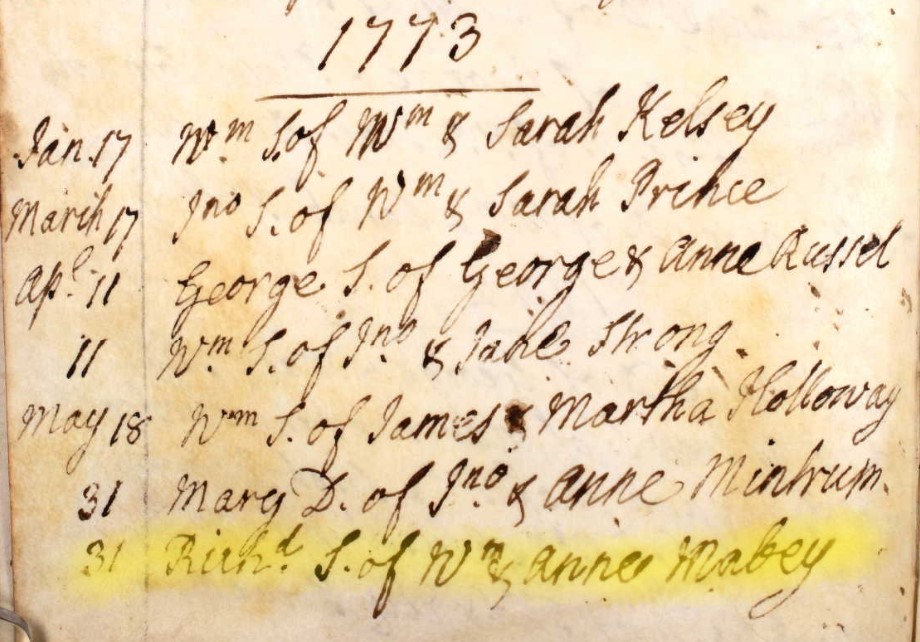 1773
Jan. 17 Wm S. of Wm & Sarah Kelsey
March 17 Jno S. of Wm & Sarah Prince
Apl. 11 George S. of George & Anne Russel
11 Wm S. of Jno & Jane Strong
May 18 Wm S. of James & Martha Holloway
31 Mary D. of Jno & Anne Mintrum.
31 Richd. S. of Wm & Anne Mabey